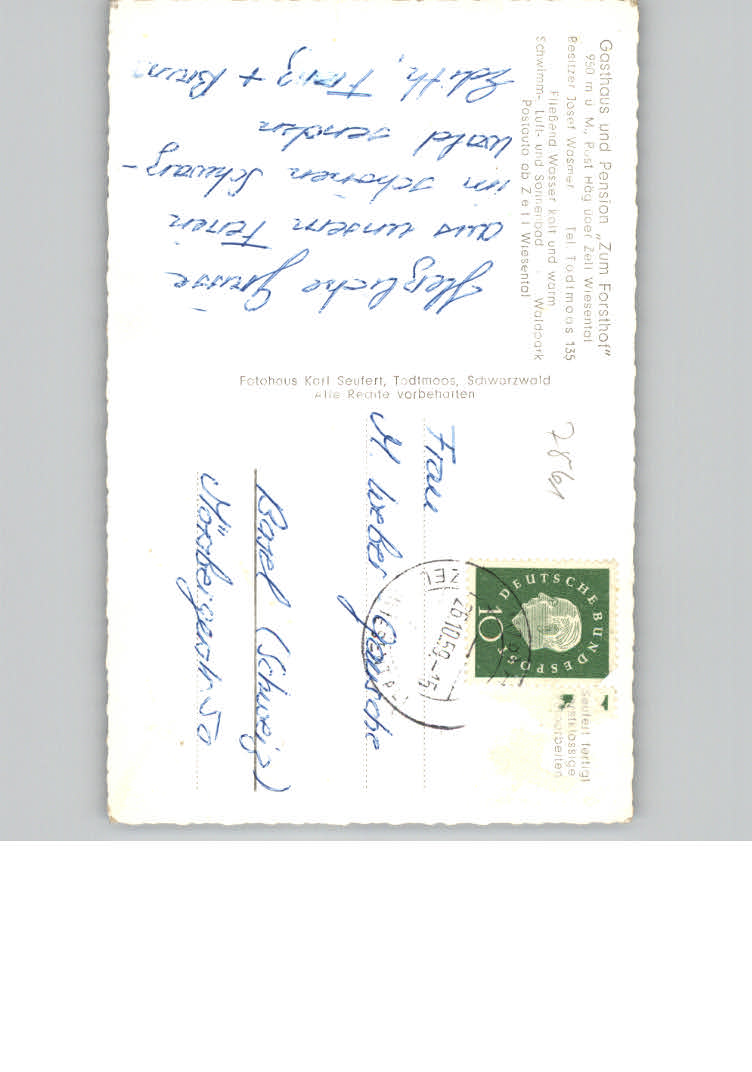 Gasthaus und Pension „Zum Forsthof"
950 m ü. M., Post Häg über Zell Wiesental
Besitzer Josef Wasmer Tel. Todtmoos 135
Fließend Wasser kalt und warm
Schwimm-, Luft- und Sonnenbad - Waldpark
Postauto ab Zell Wiesental
Herzliche Grüsse
aus unsern Ferien
im schönen Schwarz-
wald senden
Edith, Franz +
Fotohaus Karl Seufert, Todtmoos, Schwarzwald
Alle Rechte vorbehalten
7861
DEUTSCHE BUNDESPOST
10
26.10.59.-15
ZELL
Seufert fertigt
erstklassige
arbeiten
Frau
M. Weber
Basel (Schweiz)
50